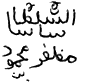 السلطان
سا سا
مظفر محمود